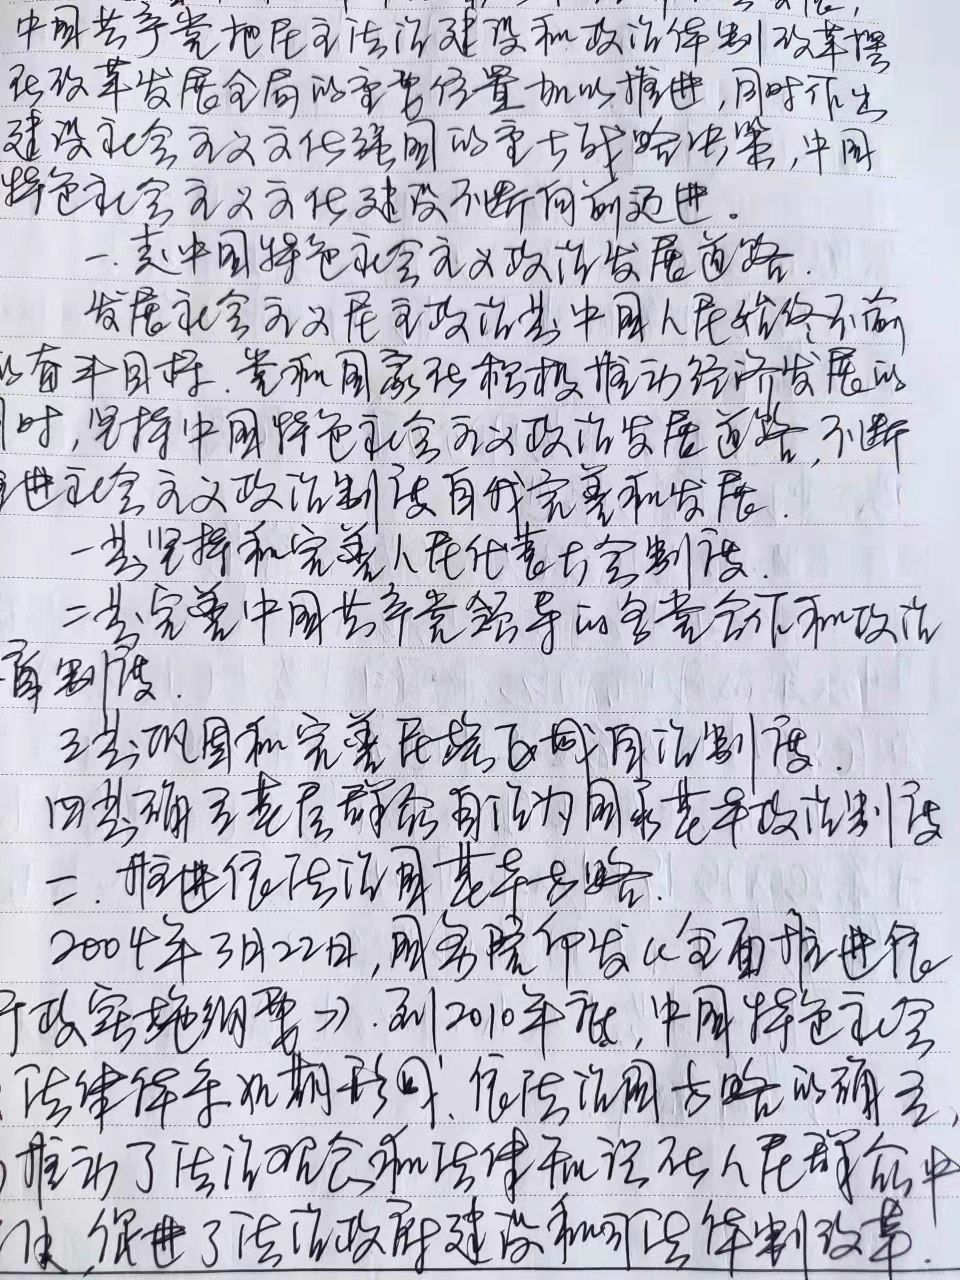 中国共产党把民主法治建设和政治体制改革摆
在改革发展全局的重要位置加以推进，同时作出
建设社会主义文化强国的重大战略决策，中国
特色社会主义文化建设不断向前迈进。
一.走中国特色社会主义政治发展道路.
发展社会主义民主政治是中国人民始终不渝
的奋斗目标.党和国家在积极推动经济发展的
同时,坚持中国特色社会主义政治发展道路,不断
推进社会主义政治制度自我完善和发展.
一是坚持和完善人民代表大会制度.
二是完善中国共产党领导的多党合作和政治
商制度.
三是巩固和完善民族区域自治制度.
四是确立基层群众自治为国家基本政治制度
二.推进依法治国基本方略.
2004年3月22日,国务院印发《全面推进依
行政实施纲要》.到2010年底,中国特色社会
法律体系如期形成,依法治国方略的确立,
推动了法治观念和法律知识在人民群众中
及,促进了法治政府建设和司法体制改革.